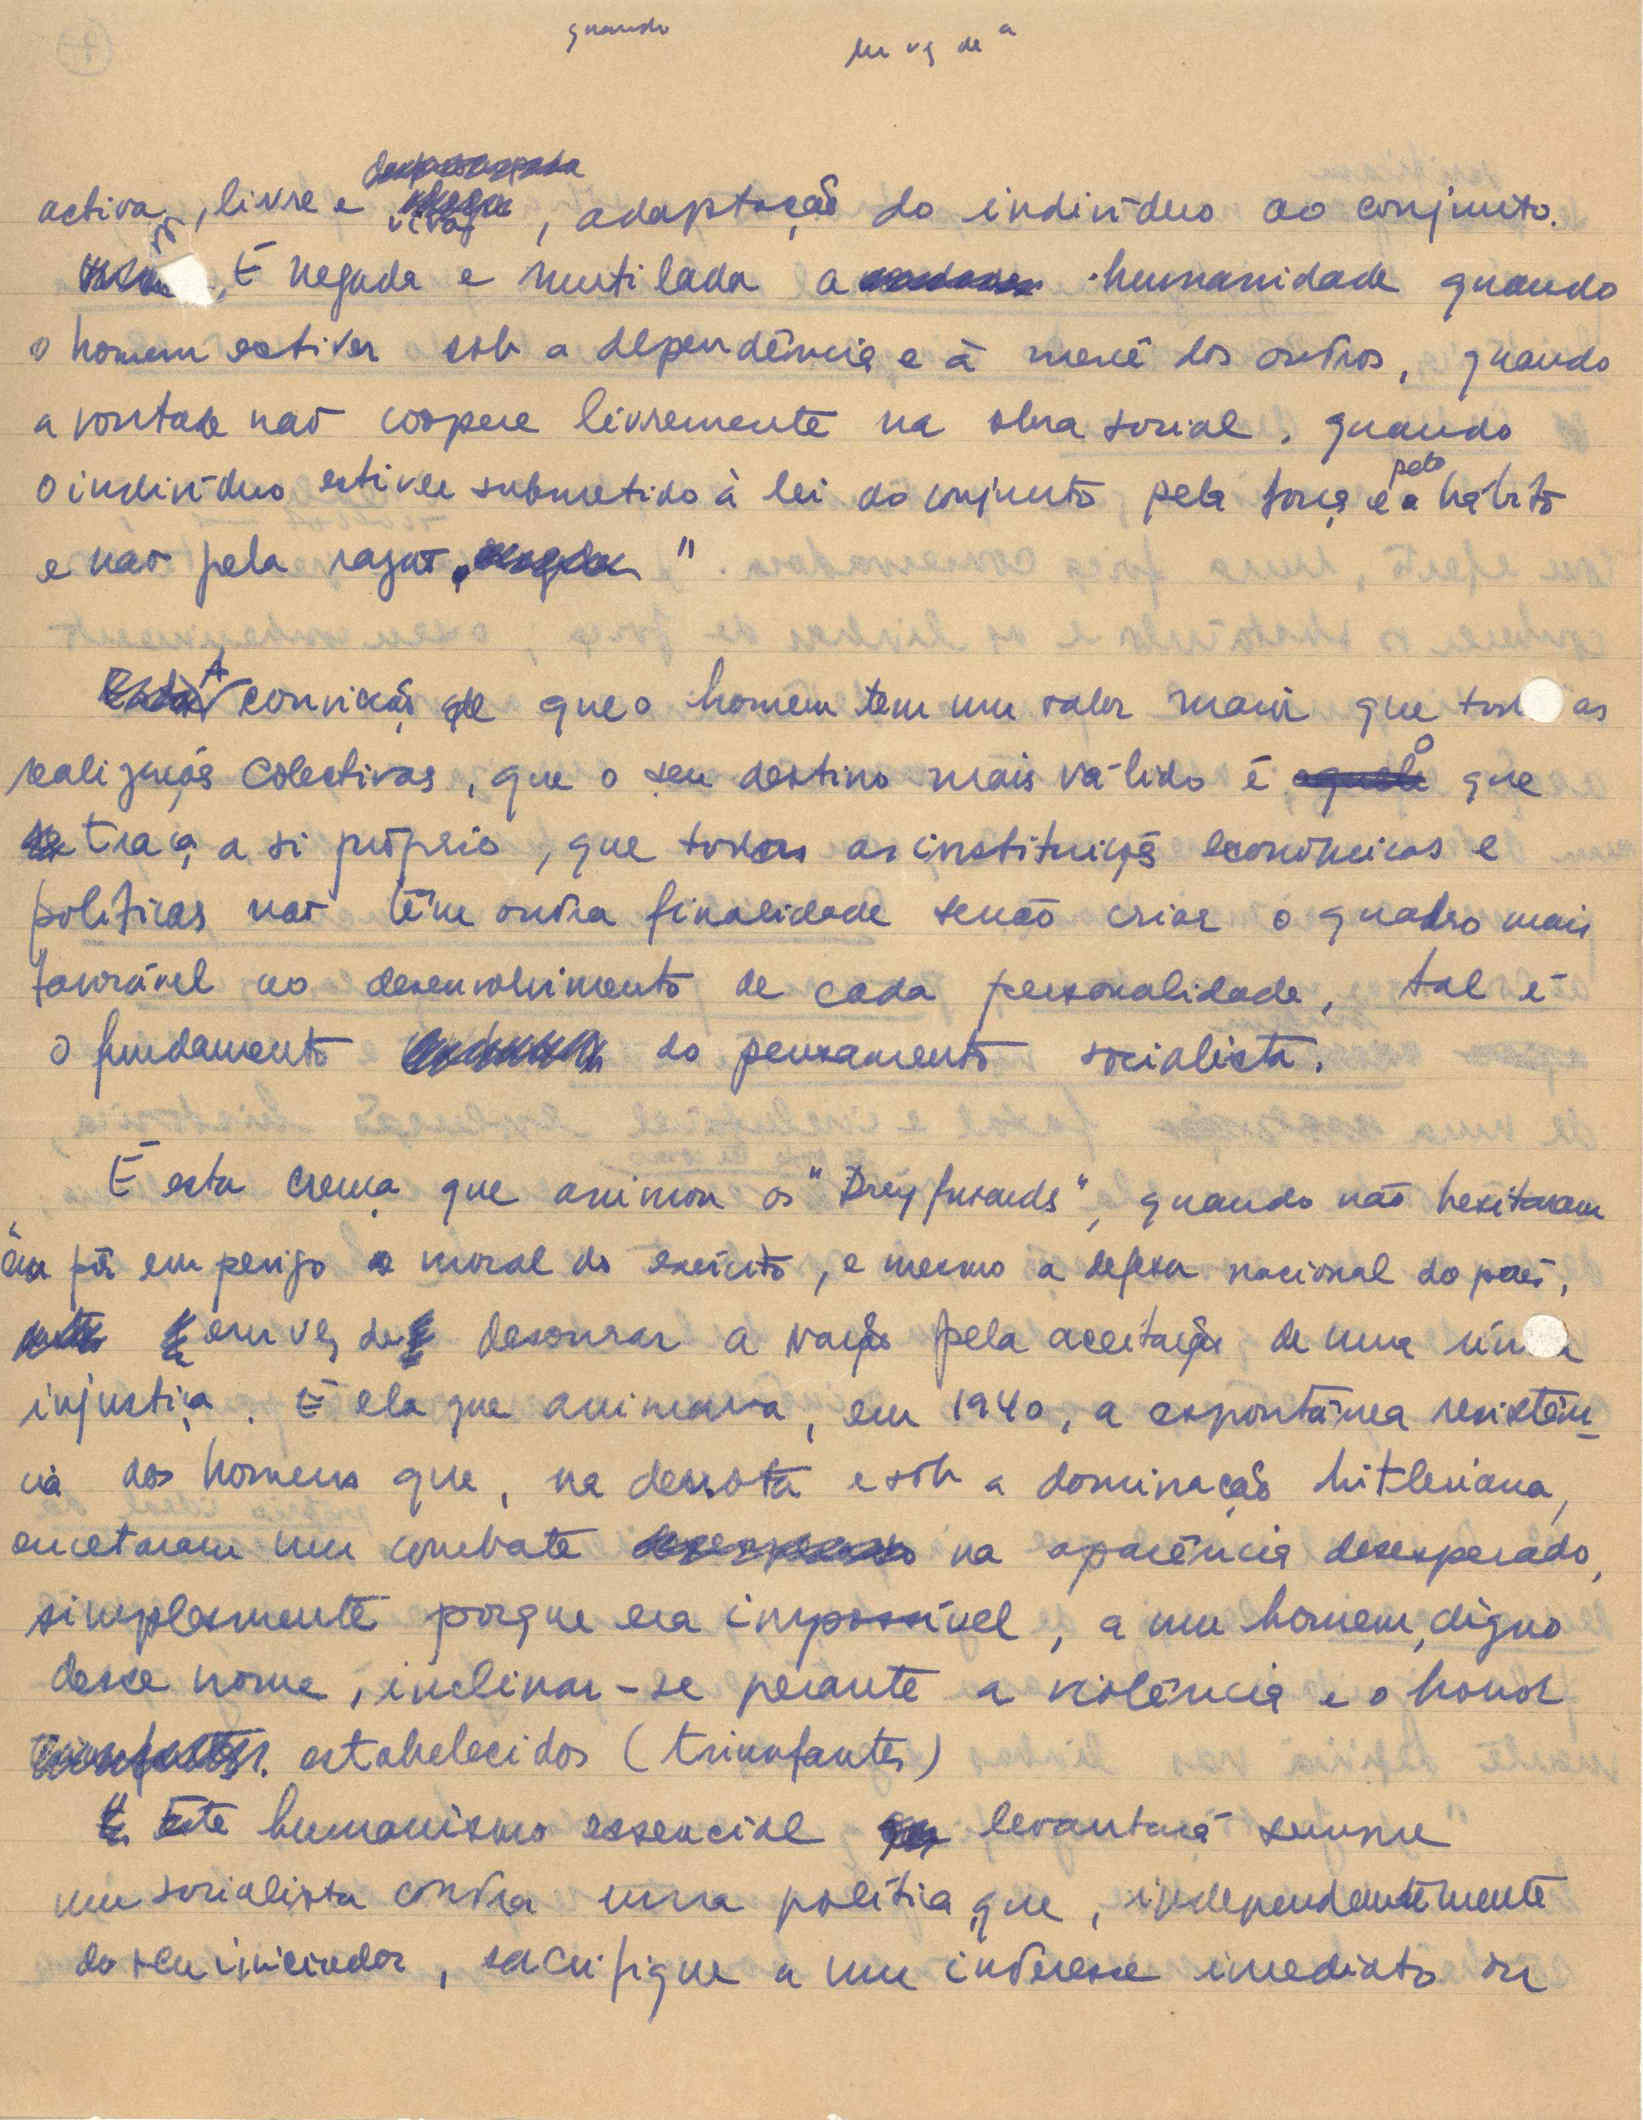 quando
em vez de a
activa, livre e viva, adaptação do indivíduo ao conjunto.
É negada e mutilada a humanidade quando
o homem estiver sob a dependência e à mercê dos outros, quando
a vontade não coopere livremente na obra social, quando
o indivíduo estiver submetido à lei do conjunto pela força e pelo hábito
e não pela razão."
A convicção de que o homem tem um valor maior que todas as
realizações colectivas, que o seu destino mais válido é o que
traça a si próprio, que todas as instituições económicas e
políticas não têm outra finalidade senão criar o quadro mais
favorável ao desenvolvimento de cada personalidade, tal é
o fundamento do pensamento socialista.
É esta crença que animou os "Dreyfusards", quando não hesitaram
em pôr em perigo o moral do exército, e mesmo a defesa nacional do país,
em vez de desonrar a nação pela aceitação de uma única
injustiça. É ela que animava, em 1940, a espontânea resistên-
cia dos homens que, na derrota e sob a dominação hitleriana,
encetaram um combate na aparência desesperado,
simplesmente porque era impossível, a um homem, digno
desse nome, inclinar-se perante a violência e o horror
estabelecidos (triunfantes)
Este humanismo essencial levantará sempre
um socialista contra uma política que, independentemente
do seu iniciador, sacrifique a um interesse imediato ou